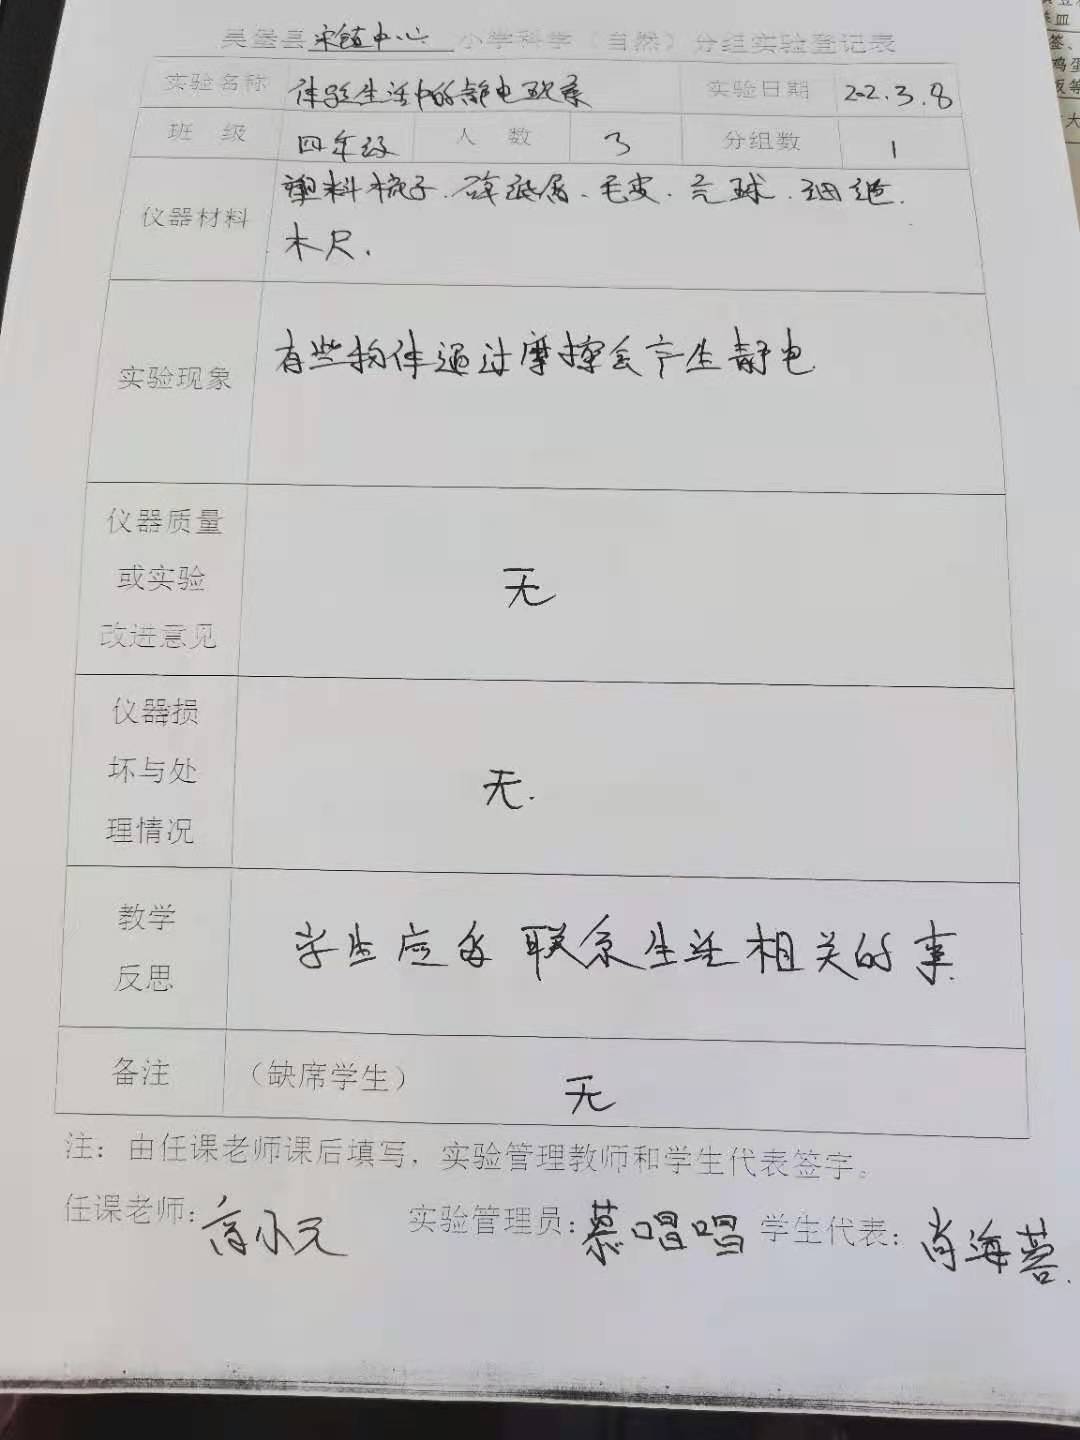 吴堡县宋镇中心小学科学（自然）分组实验登记表
实验名称 体验生活中的静电现象 实验日期 22.3.8
班 级 四年级 人 数 3 分组数 1
仪器材料 塑料梳子、碎纸屑、毛皮、气球、细绳、
木尺.
实验现象 有些物体通过摩擦会产生静电
仪器质量
或实验 无
改进意见
仪器损
坏与处 无.
理情况
教学
反思 学生应多联系生活相关的事
备注 （缺席学生） 无
注：由任课老师课后填写，实验管理教师和学生代表签字。
任课老师： 实验管理员：慕唱唱 学生代表：肖海蓉